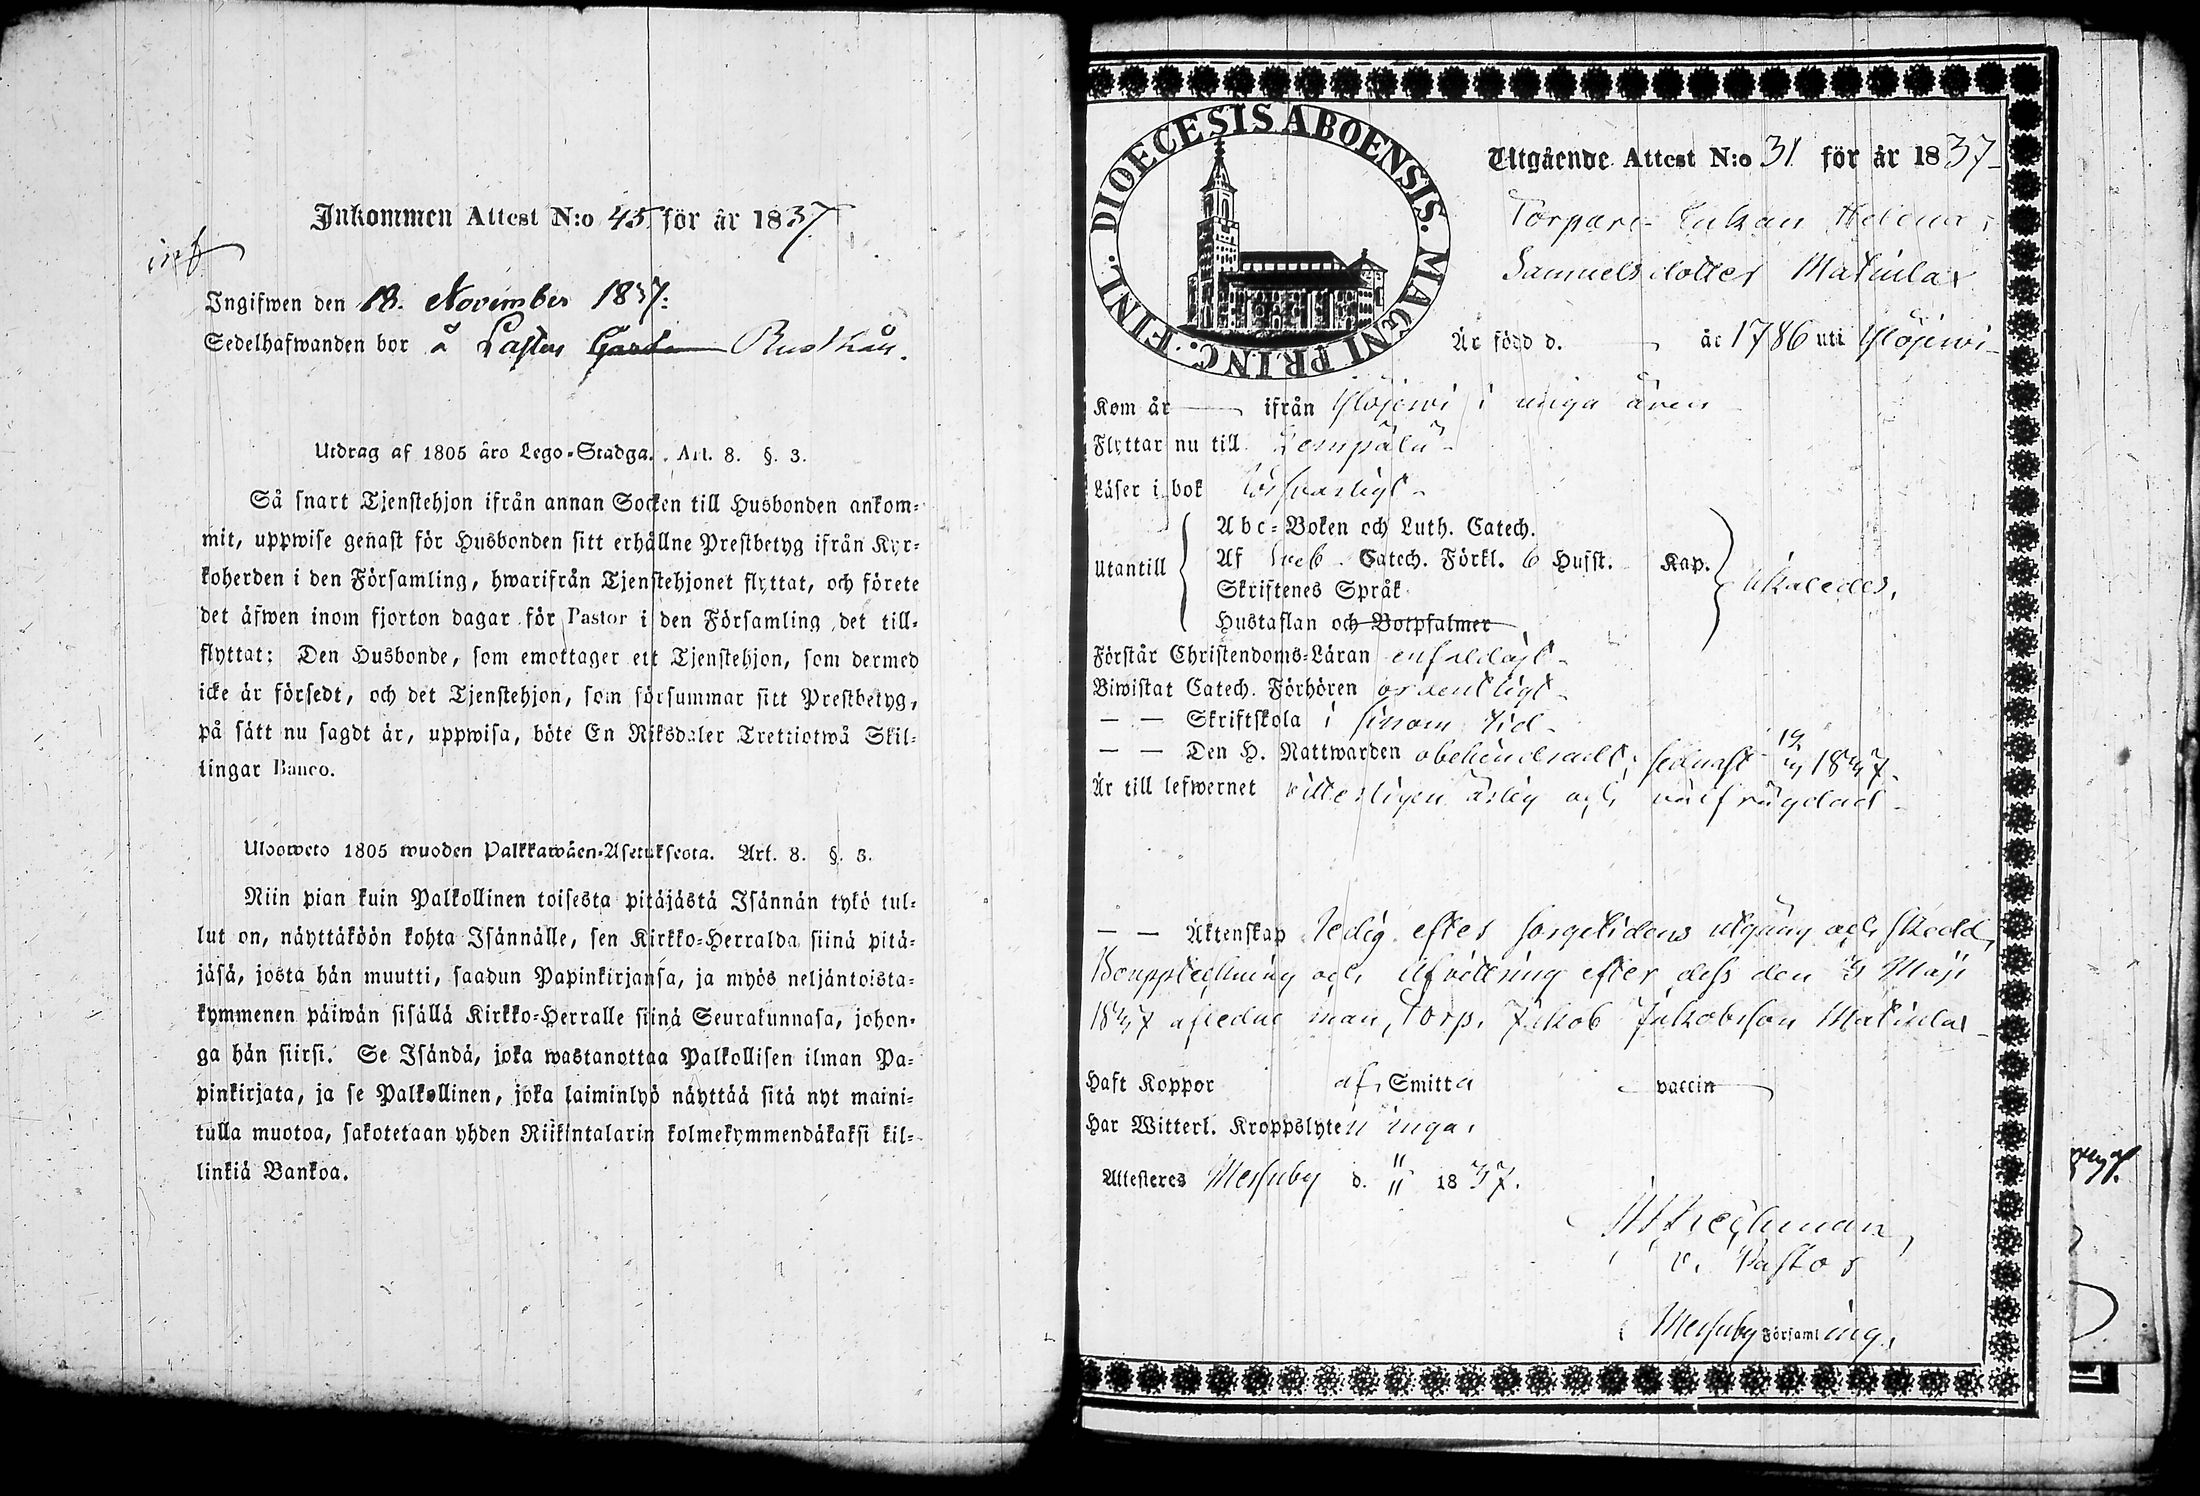 Inkommen Attest N:o 45. för år 1837.
Ingifwen den 18. November 1837.
Sedelhafwanden bor å Lastus Gårds Rusthåll.
Utdrag af 1805 års Lego-Stadga. Art. 8. §. 3.
Så snart Tjenstehjon ifrån annan Socken till Husbonden ankom-
mit, uppwise genast för Husbonden sitt erhållne Prestbetyg ifrån Kyr-
koherden i den Församling, hwarifrån Tjenstehjonet flyttat, och förete
det äfwen inom fjorton dagar för Pastor i den Församling det till-
flyttat: Den Husbonde, som emottager ett Tjenstehjon, som dermed
icke är försedt, och det Tjenstehjon, som försummar sitt Prestbetyg,
på sätt nu sagdt är, uppwisa, böte En Riksdaler Trettiotwå Skil-
lingar Banco.
Uloosweto 1805 wuoden Palkkawäen-Asetuksesta. Art. 8. §. 3.
Niin pian kuin Palkollinen toisesta pitäjästä Isännän tykö tul-
lut on, näyttäköön kohta Isännälle, sen Kirkko-Herralda siinä pitä-
jäsä, josta hän muutti, saadun Papinkirjansa, ja myös neljäntoista-
kymmenen päiwän sisällä Kirkko-Herralle siinä Seurakunnasa, johon-
ga hän siirsi. Se Isändä, joka wastanottaa Palkollisen ilman Pa-
pinkirjata, ja se Palkollinen, joka laiminlyö näyttää sitä nyt maini-
tulla muotoa, sakotetaan yhden Riikintalarin kolmekymmendäkaksi kil-
linkiä Bankoa.
DIOECESIS ABOENSIS. MAGNI PRINC. FINL.
Utgående Attest N:o 31 för år 1837
Torpare-Enkan Helena
Samuelsdotter Matiula
Är född d. — år 1786 uti Ylöjerwi
Kom år — ifrån Ylöjerwi i unga åren
Flyttar nu till Lempälä
Läser i bok försvarligt
Utantill
Abc-Boken och Luth. Catech.
Af Sveb. Catech. Förkl. 6 Hufst. Kap.
Skriftenes Språk
Hustaflan och Botpsalmer
likaledes.
Förstår Christendoms-Läran enfaldigt
Biwistat Catech. Förhören ordentligt
— — Skriftskola i sinom tid
— — Den H. Nattwarden obehindradt, sednast 19/ 1837.
Är till lefwernet witterligen ärlig och wälfrägdad
— — Äktenskap ledig efter sorgetidens utgång och skedd
Bouppteckning och Afvittring efter dess den Maji
1837 afledne man, Torp. Jakob Jakobsson Matiula
Haft Koppor af Smitta — vaccin
Har Witterl. Kroppslyten inga.
Attesteres Messuby d. 1837.
v. Pastor
i Messuby Församling.